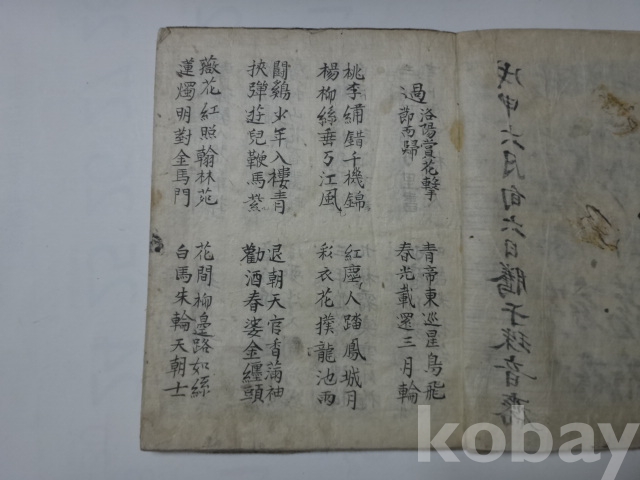 戊申六月旬六日謄于珠音齋
過
洛陽賞花擊
節而歸
青帝東巡星鳥飛
春光載還三月輪
桃李繡錯千機錦
楊柳絲垂万江風
紅塵人踏鳳城月
彩衣花撲龍池雨
鬪鷄少年入樓青
挾彈遊兒鞭馬紫
退朝天官香滿袖
勸酒春婆金纏頭
薇花紅照翰林苑
蓮燭明對金馬門
花間柳邊路如絲
白馬朱輪天朝士
kobay